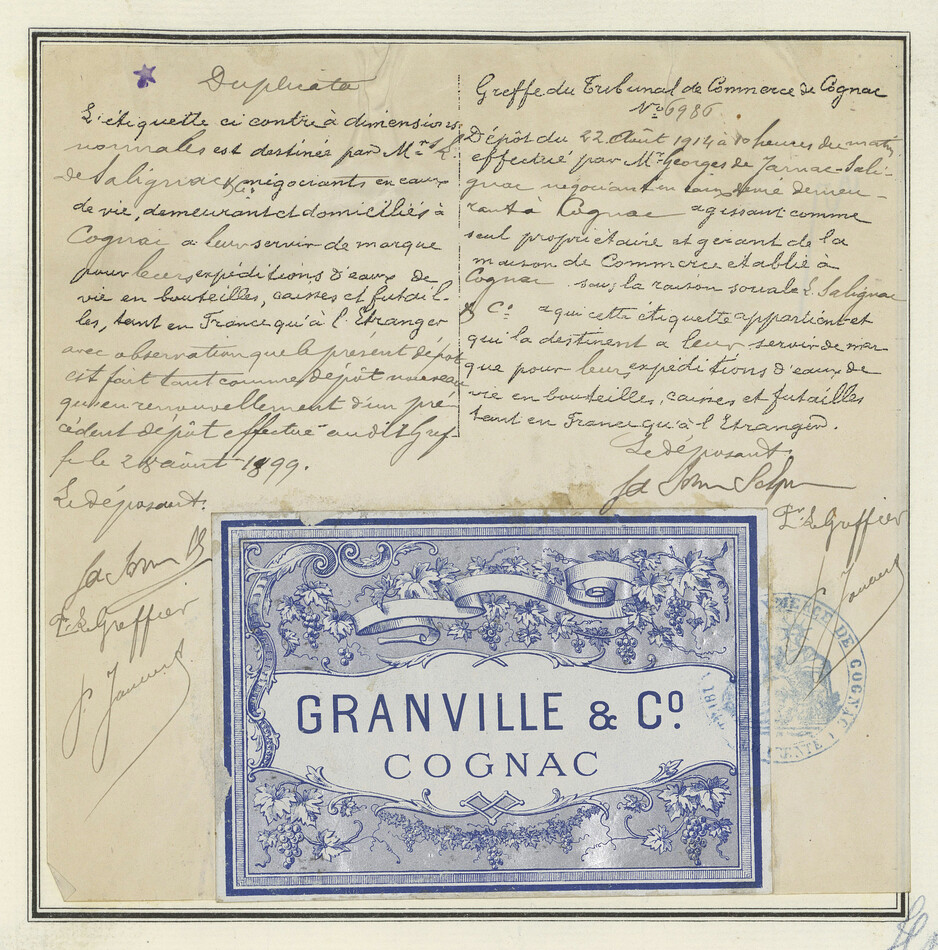 Duplicata
L'étiquette ci contre à dimensions
normales est destinée par Mr L.
de Salignac & négociants en eaux
de vie, demeurant et domiciliés à
Cognac a leur servir de marque
pour leurs expéditions d'eaux de
vie en bouteilles, caisses et futail-
les, tant en France qu'à l'Etranger
avec observation que le présent dépot
est fait tant comme dépot nouveau
qu'en renouvellement d'un pré-
cédent dépot effectué audit Gref-
fe le 28 août 1899.
Le déposant.
Pr. Le Greffier
Greffe du Tribunal de Commerce de Cognac
No. 6986
Dépôt du 22 Août 1914 à 10 heures du matin
effectué par Mr Georges de Jarnac-Sali-
gnac négociant en eaux de vie demeu-
rant à Cognac agissant comme
seul propriétaire et gérant de la
maison de Commerce établie à
Cognac sous la raison sociale L. Salignac
& Co. a qui cette étiquette appartient et
qui la destinent a leur servir de mar-
que pour leurs expéditions d'eaux de
vie en bouteilles, caisses et futailles
tant en France qu'à l'Etranger.
Le déposant.
Pr. Le Greffier
GRANVILLE & Co.
COGNAC
MMERCE DE COGNAC